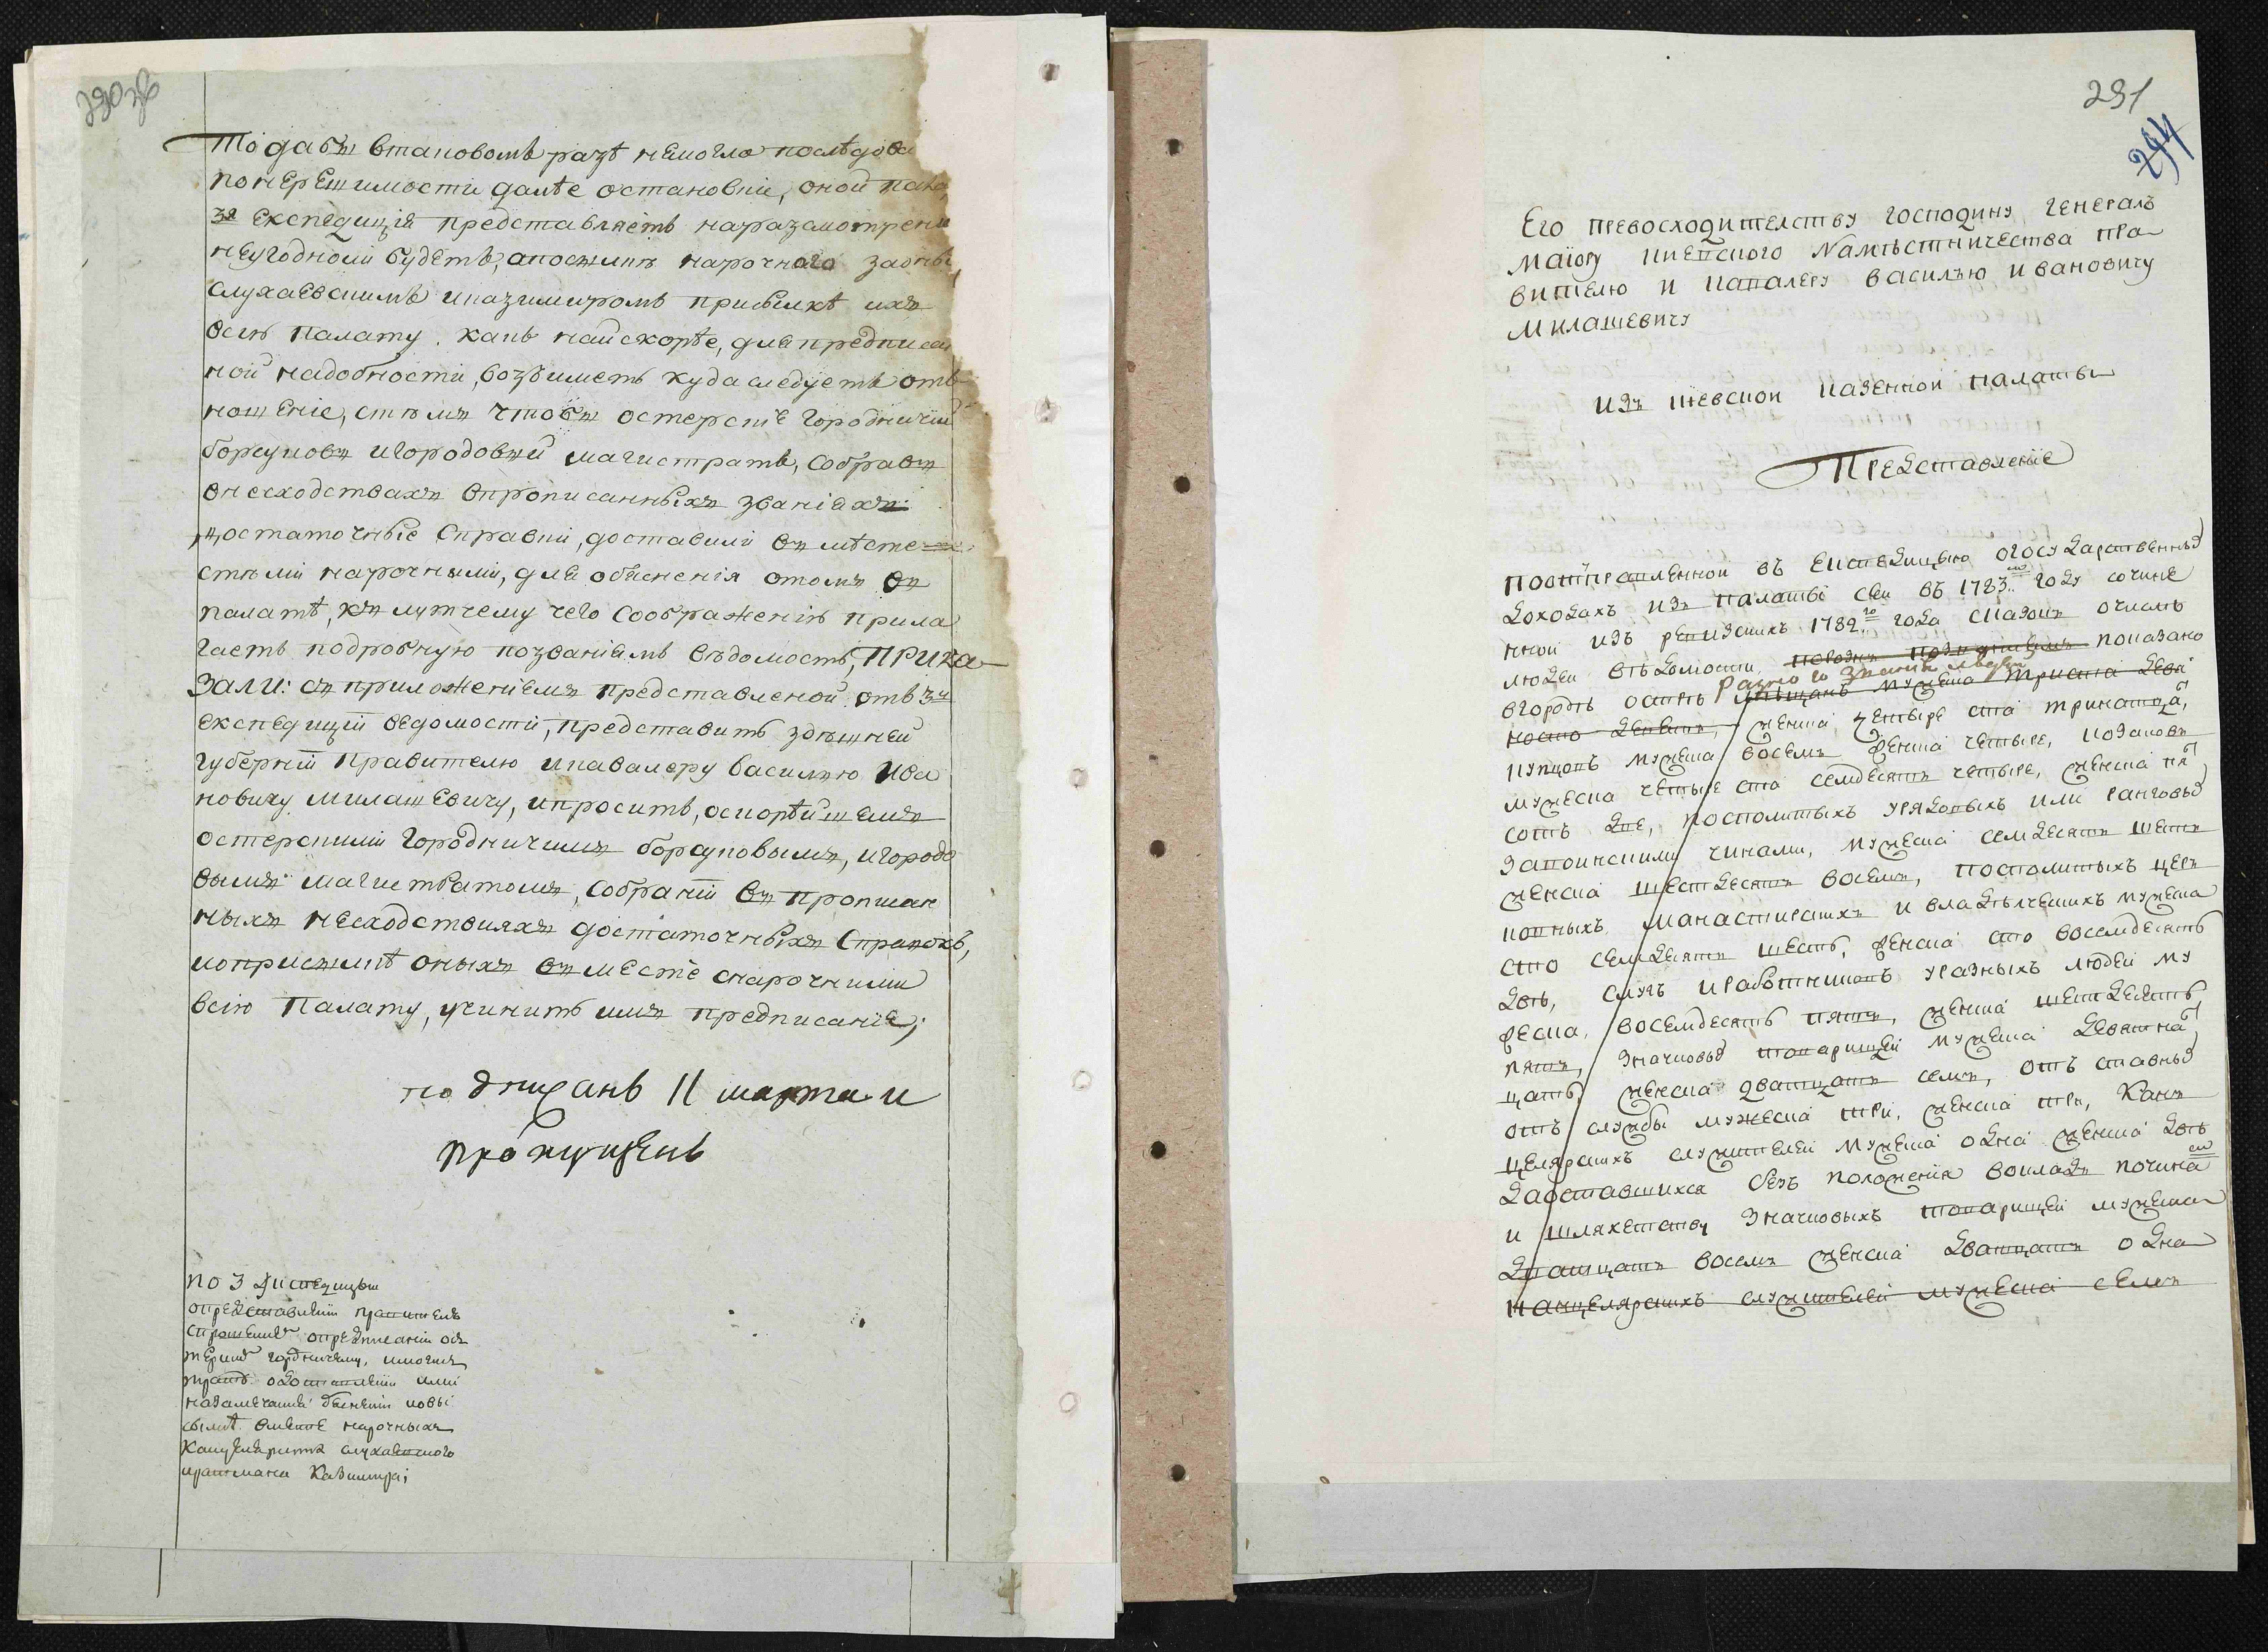 290 об
То дабы втаковомъ разѣ немогло последова
понерешимости далѣе остановки, оной пала
3я експедиція представляетъ наразсмотрени
неугодноли будетъ, апосылкѣ нарочнаго заоны
слухаевскимъ иказимиромъ присылкѣ ихъ
всѣ палату. какъ найскорѣе, для предписан
ной надобности, возъиметь куда следуетъ отъ
ношеніе, стѣмъ чтобы остерскіе городничій
борсуковъ игородовый магистратъ, собравъ
онесходствахъ впрописанныхъ званіяхъ
достаточные справки, доставили въ мѣсте
стѣми нарочными, для объясненія отомъ въ
палатѣ, къ лутчему чего соображенію прила
гаетъ подробную позваніямъ вѣдомость, ПРИКА
ЗАЛИ: съ приложеніемъ представленой отъ 3й
експедиціи ведомости, представить здѣшней
губерніи правителю икавалеру василью ива
новичу милашевичу, ипросить, оскорѣйшемъ
остерскими городничимъ борсуковымъ, игородо
вымъ магистратомъ, собраніи въ прописан
ныхъ несходствияхъ достаточныхъ справокъ,
иоприсылкѣ оныхъ въместе снарочними
всію палату, учинить имъ предписаніе;
подписанъ 11 марта и
пропущенъ
по 3 Експедиціи
опредставленіи правителю
спрошеніемъ опредписаніи ос
терскимъ городничему, имагис
трату одоставленіи ими
назамечаніи объясненіи иовы
сылкѣ вместе нарочныхъ
канцеляриста слухаевского
иратмана Казимира;
291
294
Его превосходителству господину генералъ
маіору киевского Намѣстничества пра
вителю и кавалеру василью ивановичу
милашевичу
изъ киевской казенной палаты
Представленіе
поотправленной въ експедицыю огосударственныхъ
доходахъ изъ палаты сей въ 1783мъ году сочине
нной изъ ревизскихъ 1782го года сказокъ очислѣ
людей вѣдомости показано
разного званія людей
вгородѣ острѣ мѣщанъ мужеска триста девя
носто девять, женска четыре ста тринатца
купцовъ мужеска восемъ женска четыре, козаковъ
мужеска четыре ста семдесятъ четыре, женска пя
сотъ две, посполитыхъ урядовыхъ или ранговыхъ
запоинскими чинами, мужеска семдесятъ шесть
женска шестдесятъ восемь, посполитыхъ цер
ковныхъ манастирскихъ и владѣлческихъ мужеска
сто семдесятъ шесть, женска сто восемдесятъ
две, слугъ иработниковъ уразныхъ людей му
жеска, восемдесятъ пять, женска шестдесятъ
пять, значковыхъ товарищей мужеска девятна
цать женска дватцать семь, отъ ставныхъ
отъ службы мужеска три, женска три, Кан
целярскихъ служителей мужеска одна женска две
даоставшихся безъ положенія вокладъ почина
и шляхетству значковыхъ товарищей мужеска
дватцать восемъ женска дватцать одна
канцелярскихъ служителей мужеска семъ